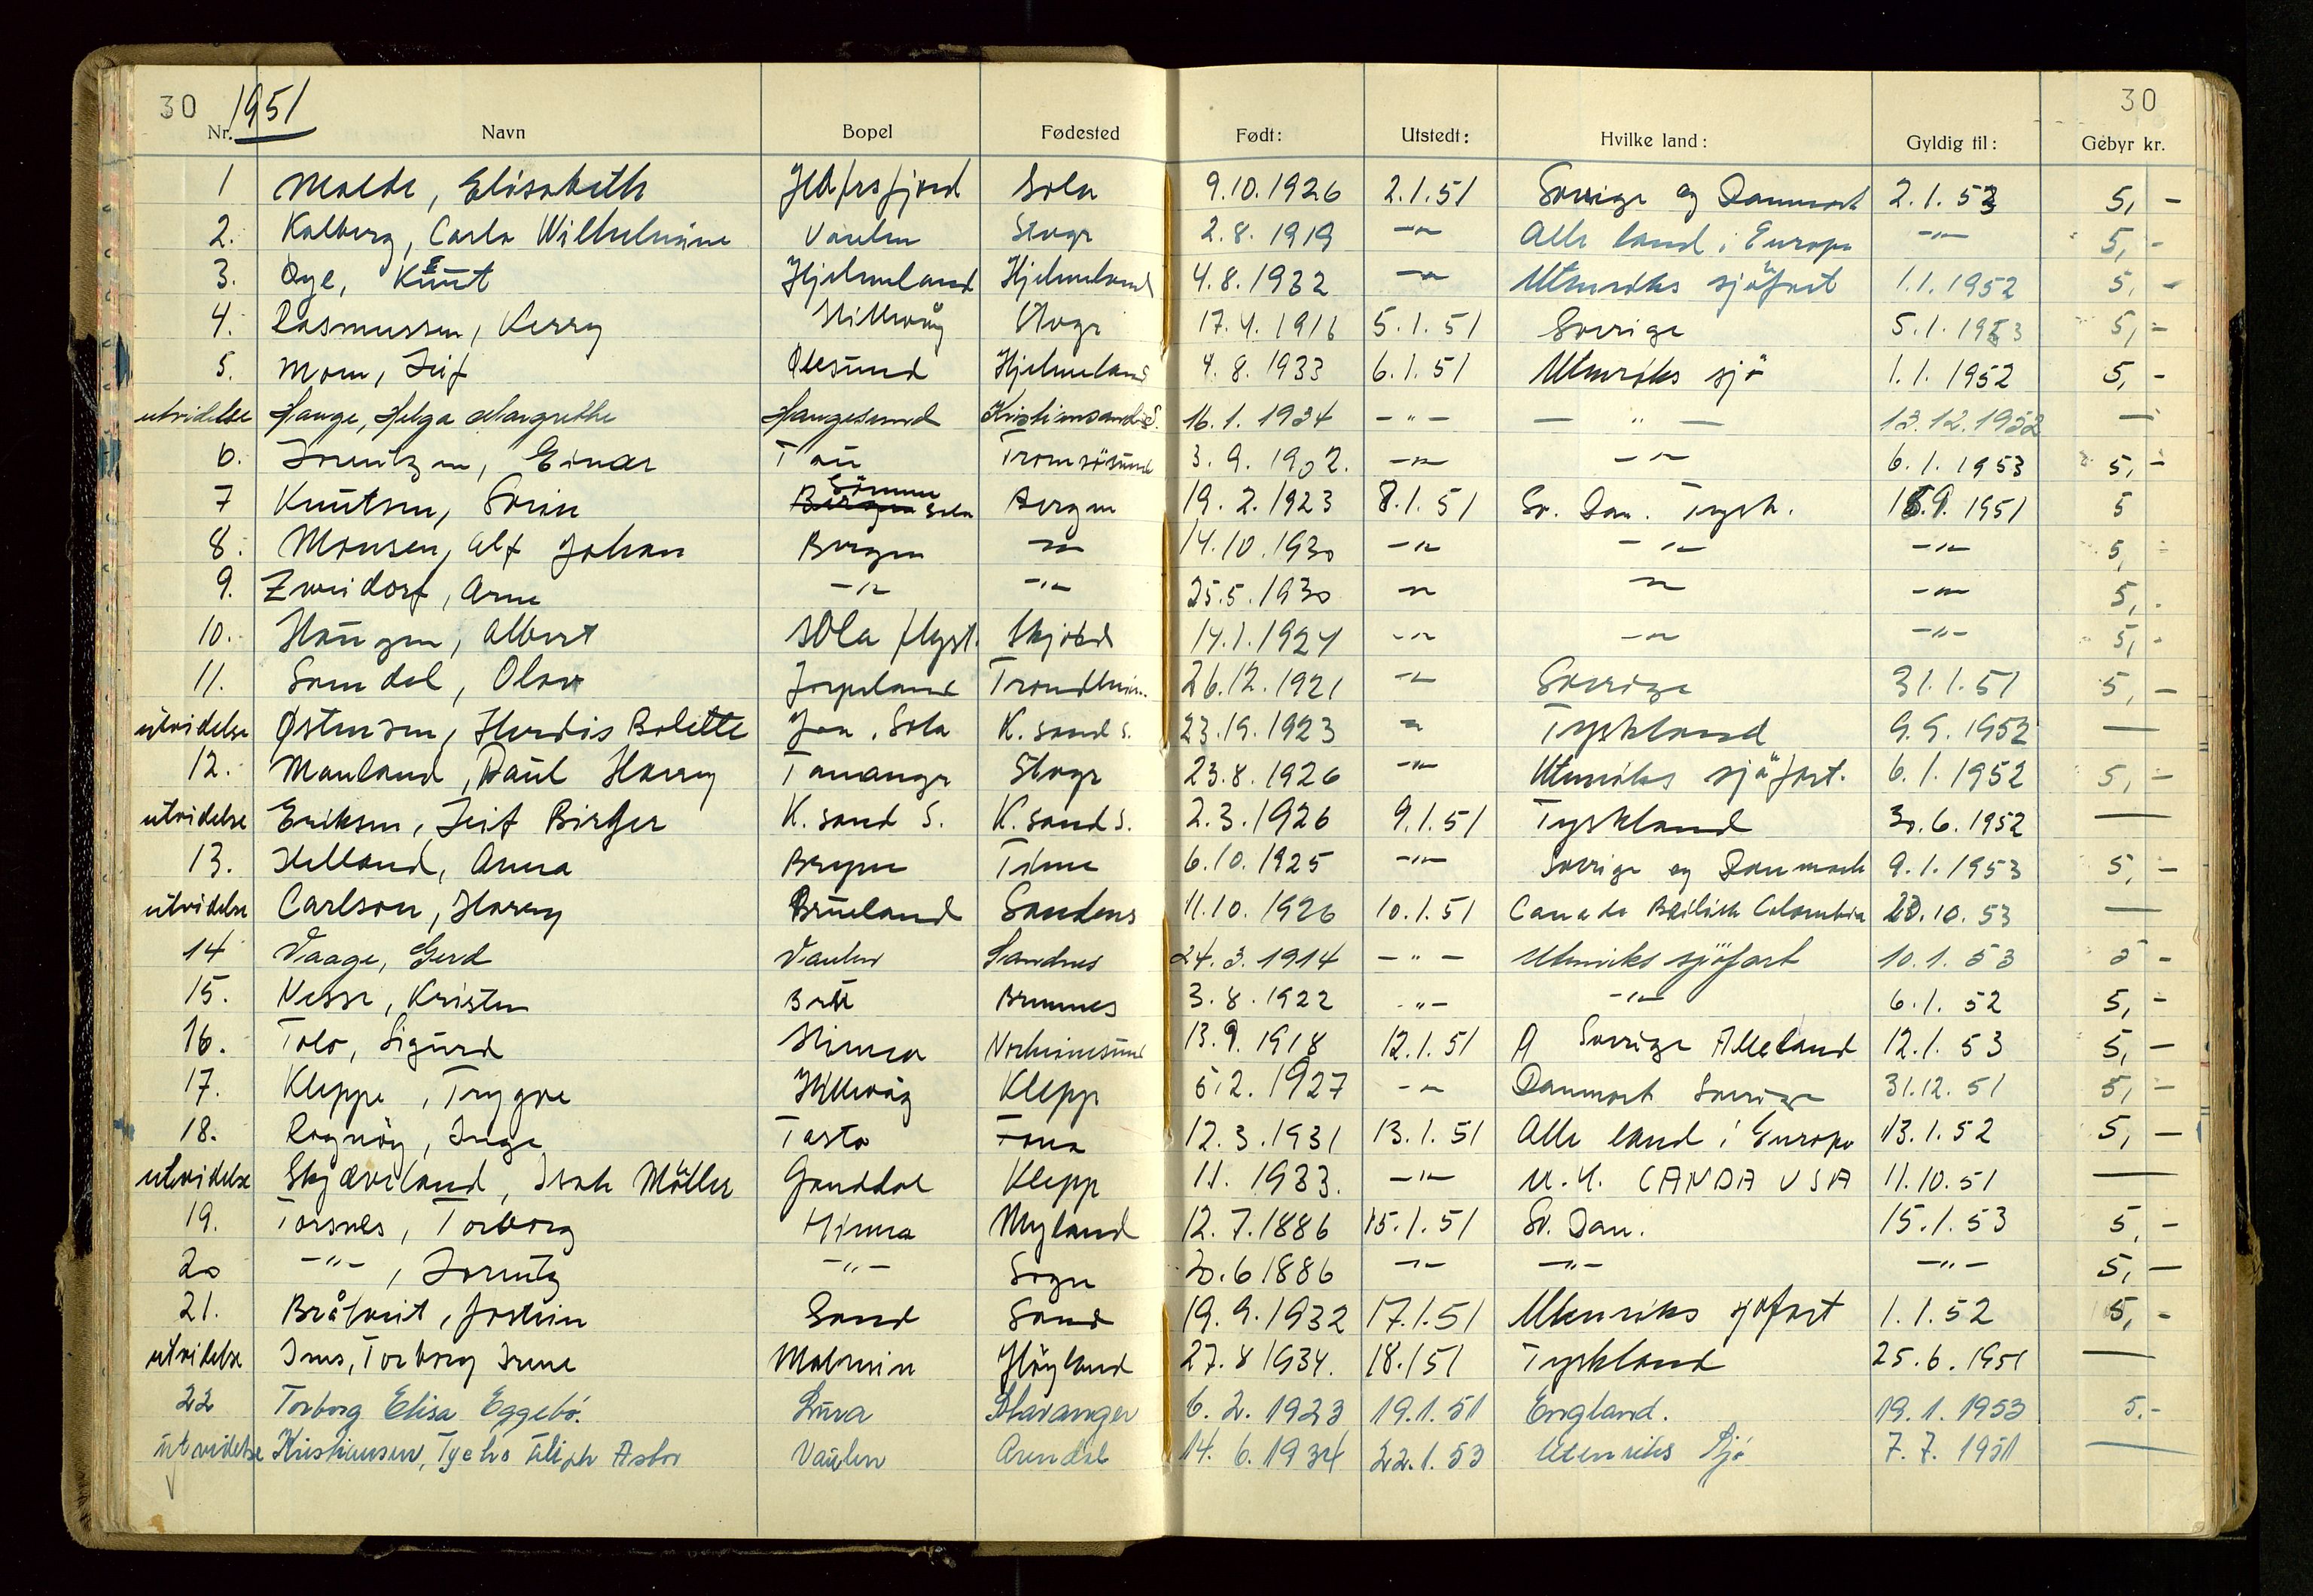 30 1951 30
Nr. Navn Bopel Fødested Født: Utstedt: Hvilke land: Gyldig til: Gebyr kr.
1 Malde, Elisabeth Hafrsfjord Sola 9.10.1926 2.1.51 Sverige og Danmark 2.1.53 5,-
2. Kalberg, Carla Wilhelmine Vaulen Stvgr 2.8.1919 -"- Alle land i Europa -"- 5,-
3. Øye, Knut Hjelmeland Hjelmeland 4.8.1932 -"- Utenriks sjöfart 1.1.1952 5,-
4. Rasmussen, Kerry Hillevåg Stvgr 17.4.1916 5.1.51 Sverige 5.1.1953 5,-
5. Moen, Leif Ølesund Hjelmeland 4.8.1933 6.1.51 Utenriks sjö 1.1.1952 5,-
utvidelse Hauge, Helga Margrethe Haugesund Kristiansand S. 16.1.1934 -"- -"- 13.12.1952 -
6. Lorentzen, Einar Tau Tromsösund 3.9.1902. -"- -"- 6.1.1953 5,-
7 Knutsen, Sörine Sömme Sola Bergen 19.2.1923 8.1.51 Sv. Dan. Tysk. 1951 5
8. Monsen, Alf Johan Bergen -"- 14.10.1930 -"- -"- -"- 5,-
9. Zweidorf, Arne -"- -"- 25.5.1930 -"- -"- -"- 5,-
10. Haugen, Albert Sola flypl. Skjold 14.1.1924 -"- -"- -"- 5,-
11. Somdal, Olav Jørpeland Trondheim. 26.12.1921 -"- Sverige 31.1.51 5,-
utvidelse Østensen, Herdis Bolette Joa, Sola K. sand S. 23.19.1923 -"- Tyskland 9.9.1952 -
12. Mauland, Paul Harry Tananger Stvgr 23.8.1926 -"- Utenriks sjöfart. 6.1.1952 5,-
utvidelse Eriksen, Leif Birger K. sand S. K. sand S. 2.3.1926 9.1.51 Tyskland 30.6.1952 -
13. Helland, Anna Bryne Time 6.10.1925 -"- Sverige og Danmark 9.1.1953 5,-
utvidelse Carlson, Harry Brueland Sandnes 11.10.1926 10.1.51 Canada British Colombia 20.10.53 -
14 Vaage, Gerd Vaulen Sandnes 24.3.1914 -"- Utenriks sjöfart 10.1.53 5-
15. Nesse, Kristen Brømnes 3.8.1922 -"- -"- 6.1.52 5,-
16. Tolo, Sigurd Hinna Norheimsund 13.9.1918 12.1.51 Sverige Alleland 12.1.53 5,-
17. Kleppe, Trygve Hillevåg Klepp 5.2.1927 -"- Danmark Sverige 31.12.51 5,-
18. Rognöy, Inge Tasta Fana 12.3.1931 13.1.51 Alle land i Europa 13.1.52 5,-
utvidelse Skjæveland, Isak Möller Ganddal Klepp 1.1.1933. -"- U.S. CANDA USA 11.10.51 -
19. Torsnes, Torborg Hinna Myland 12.7.1886 15.1.51 Sv. Dan. 15.1.53 5,-
20 -"-, Lorentz -"- Sogn 30.6 1886 -"- -"- -"- 5,-
21. Bråtveit, Jostein Sand Sand 19.9.1932 17.1.51 Utenriks sjöfart 1.1.52 5,-
utvidelse Ims, Torborg Irene Malmein Höyland 27.8 1934. 18.151 Tyskland 25.6.1951 -
22 Torborg Elisa Eggebö. Lura Stavanger 6.2.1923 19.1.51 England. 19.1.1953 5.-
utvidelse Kristiansen, Tycho Aliph Asbør Vaulen Arendal 14.6.1934 22.1.53 Utenriks Sjö 7.7.1951 -